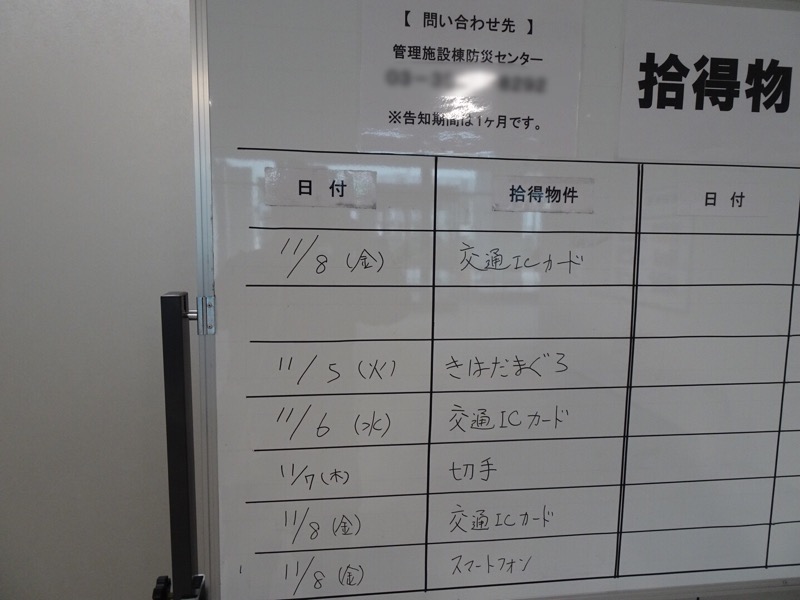 【 問い合わせ先 】
管理施設棟防災センター
※告知期間は1ヶ月です。
拾得物
日 付 拾得物件 日 付
11/8 (金) 交通ICカード
11/5 (火) きはだまぐろ
11/6 (水) 交通ICカード
11/7 (木) 切手
11/8 (金) 交通ICカード
11/8 (金) スマートフォン